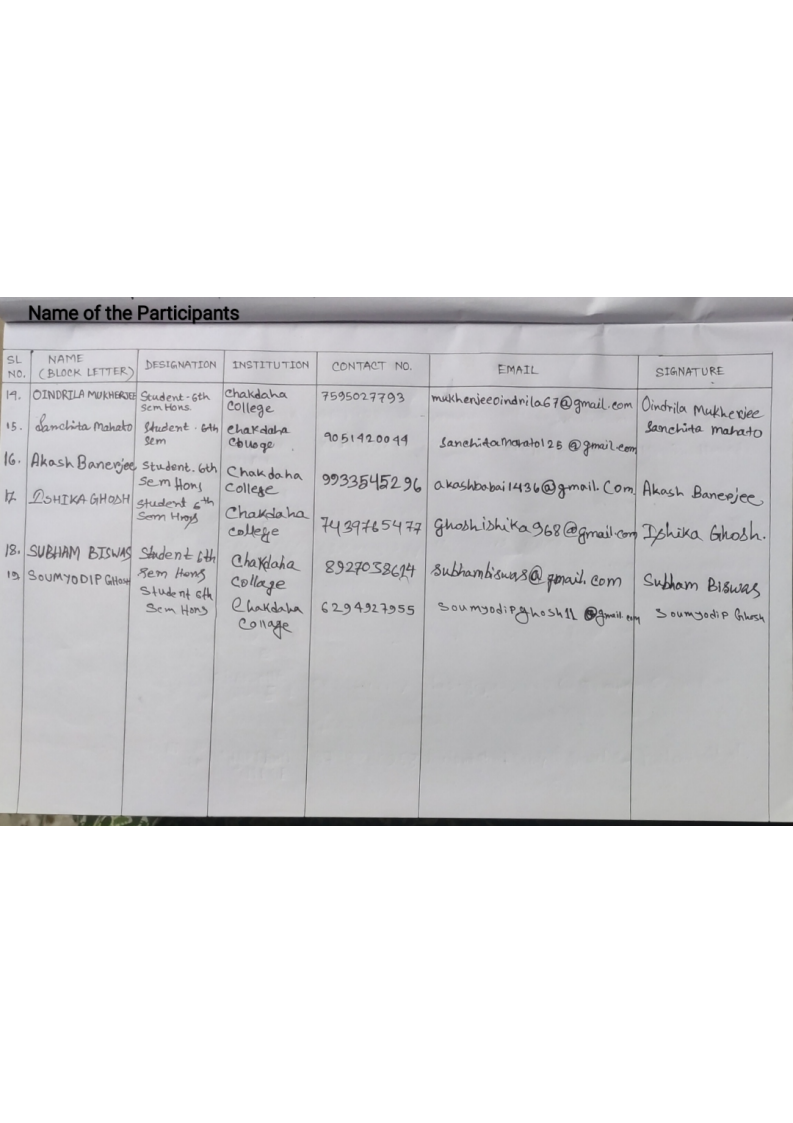 Name of the Participants
SL NO. NAME (BLOCK LETTER) DESIGNATION INSTITUTION CONTACT NO. EMAIL SIGNATURE
14. OINDRILA MUKHERJEE Student-6th Sem Hons. Chakdaha College 7595027793 mukherjeeoindrila67@gmail.com Oindrila Mukherjee
15. Sanchita Mahato Student-6th Sem Chakdaha College 9051420044 Sanchitamahato125@gmail.com Sanchita mahato
16. Akash Banerjee Student. 6th Sem Hons Chakdaha College 9933545296 akashbabai1436@gmail.Com Akash Banerjee
17. ISHIKA GHOSH Student 6th Sem Hnos Chakdaha College 7439765477 ghoshishika968@gmail.com Ishika Ghosh.
18. SUBHAM BISWAS Student 6th Sem Hons Chakdaha Collage 8927038614 subhambiswas@gmail.com Subham Biswas
19 SOUMYODIP GHOSH Student 6th Sem Hons Chakdaha Collage 6294927955 Soumyodipghosh11@gmail.com Soumyodip Ghosh